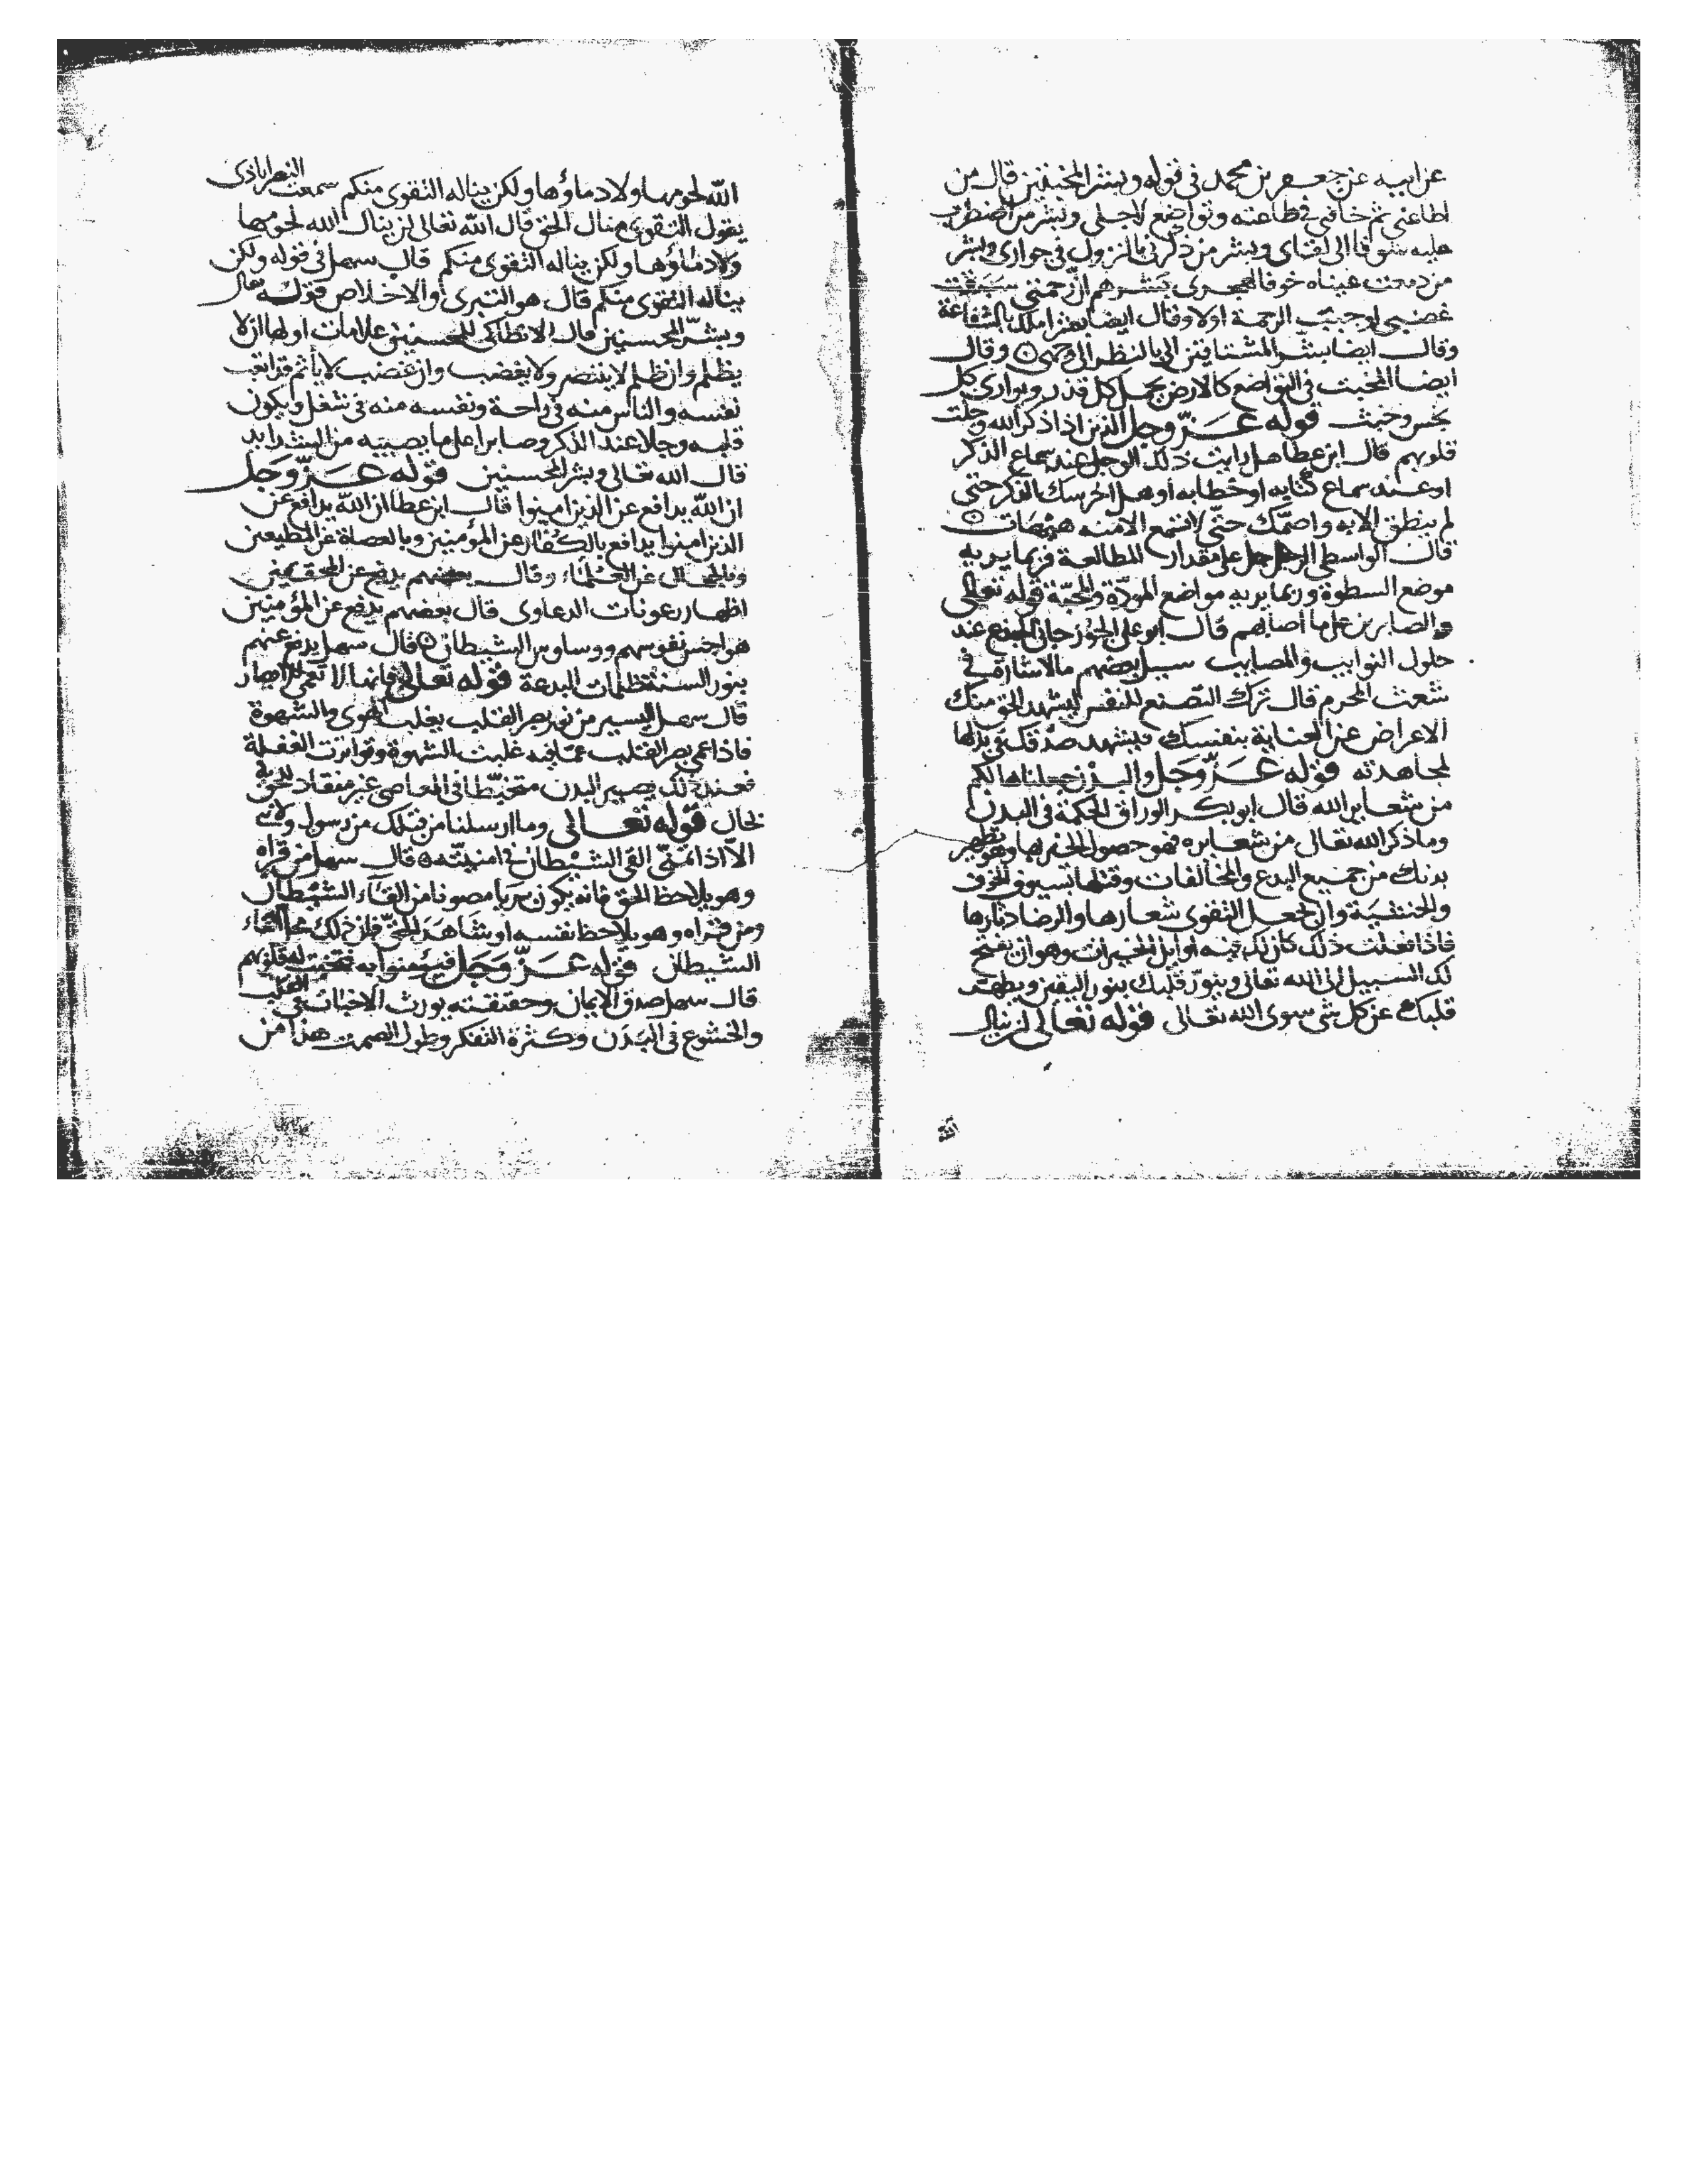 عن ابيه عن جعفر بن محمد في قوله وبشر المخبتين قال من
اطاعني ثم خافني في طاعته وتواضع لاجلي وبشر من اضطرب
قلبه شوقا الى لقاي وبشر من ذكرني بالنزول في جواري وبشر
من دمعت عيناه خوفا لهجري بشرهم ان رحمتي سبقت
غضبي اوجبت الرحمة اولا وقال ايضا بالشفاعة
وقال ايضا بشر المشتاقين الي بالنظر الى وجهي وقال
ايضا المخبت في التواضع كالارض تحمل كل قذر وتواري كل
نجس وخبث قوله عز وجل الذين اذا ذكر الله وجلت
قلوبهم قال ابن عطا هل رايت ذلك الوجل عند سماع الذكر
او عند سماع كتابه او خطابه او هل اخرسك الذكر حتى
لم ينطق الا به واصمك حتى لا تسمع الا منه هيهات
قال الواسطي الوجل على مقدار المطالعة فربما يريه
موضع السطوة وربما يريه مواضع المودة والمحبة قوله تعالى
والصابرين على ما اصابهم قال ابو علي الجوزجاني عند
حلول النوايب والمصايب سيل بعضهم ما الاشارة في
شعث المحرم قال ترك التصنع للنفس ليشهد الحق منك
الاعراض عن العناية بنفسك فيشهد صدقك في بذلها
لمجاهدته قوله عز وجل والبدن جعلناها لكم
من شعاير الله قال ابو بكر الوراق الحكمة في البدن
وما ذكر الله تعالى من شعايره فهو حصول الخير بها وهو تطهير
بدنك من جميع البدع والمخالفات وقتلها بسيوف الخوف
والخشية وان تجعل التقوى شعارها والرضا دثارها
فاذا فعلت ذلك كان لك فيه اوايل الخيرات وهو ان يفتح
لك السبيل الى الله تعالى وينور قلبك بنور اليقين ويطهر
قلبك عن كل شي سوى الله تعالى قوله تعالى لن ينال
الله لحومها ولا دماؤها ولكن يناله التقوى منكم سمعت النصراباذي
يقول التقوى منال الحق قال الله تعالى لن ينال الله لحومها
ولا دماؤها ولكن يناله التقوى منكم قال سهل في قوله ولكن
يناله التقوى منكم قال هو التبري والاخلاص قوله تعالى
وبشر المحسنين قال الانطاكي للمحسنين علامات اولها ان لا
يظلم وان ظلم لا ينتصر ولا يغضب وان غضب لا يأثم قد اتعب
نفسه والناس منه في راحة ونفسه منه في شغل ويكون
قلبه وجلا عند الذكر وصابرا على ما يصيبه من الشدايد
قال الله تعالى وبشر المحسنين قوله عز وجل
ان الله يدافع عن الذين امنوا قال ابن عطا ان الله يدافع عن
الذين امنوا يدافع بالكفار عن المؤمنين وبالعصاة عن المطيعين
وبالجهال عن العلماء وقال بعضهم يدفع عن المحققين
اظهار رعونات الدعاوى قال بعضهم يدفع عن المؤمنين
هواجس نفوسهم ووساوس الشيطان قال سهل يدفع عنهم
بنور السنة ظلمات البدعة قوله تعالى فانها لا تعمى الابصار
قال سهل اليسير من نور بصر القلب يغلب الهوى والشهوة
فاذا عمي بصر القلب عما فيه غلبت الشهوة وتواترت الغفلة
فعند ذلك يصير البدن متخبطا في المعاصي غير منقاد للحق
بحال قوله تعالى وما ارسلنا من قبلك من رسول ولا نبي
الا اذا تمنى القى الشيطان في امنيته قال سهل من قراه
وهو يلاحظ الحق فانه يكون مصونا من القاء الشيطان
ومن قراه وهو يلاحظ نفسه او شاهد الحق فان ذلك محل القاء
الشيطان قوله عز وجل فيؤمنوا به فتخبت له قلوبهم
قال سهل صدق الايمان وحقيقته يورث الاخبات في القلب
والخشوع في البدن وكثرة التفكر وطول الصمت هذا من